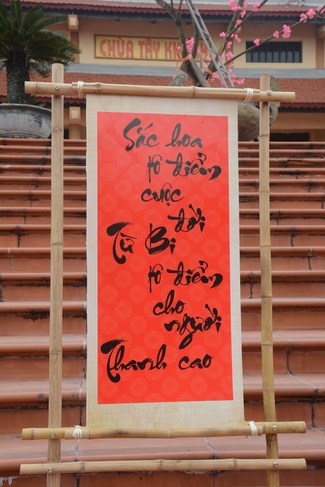 CHÙA TÂY
Sắc hoa
tô điểm
cuộc
đời
Từ Bi
tô điểm
cho
người
Thanh cao